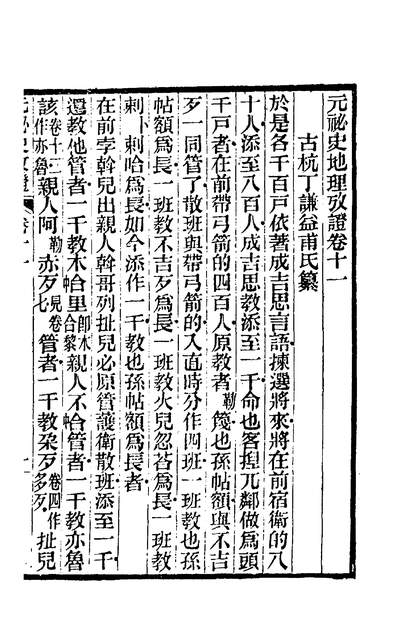 元祕史地理攷證卷十一
古杭丁謙益甫氏纂
於是各千百戸依著成吉思言語揀選將來將在前宿衛的八
十人添至八百人成吉思教添至一千命也客揑兀鄰做爲頭
千戸者在前帶弓箭的四百人原教者勒篾也孫帖額與不吉
歹一同管了散班與帶弓箭的入直時分作四班一班教也孫
帖額爲長一班教不吉歹爲長一班教火兒忽荅爲長一班教
剌卜剌哈爲長如今添作一千教也孫帖額爲長者
在前孛斡兒出親人斡哥列扯兒必原管護衛散班添至一千
還教他管者一千教木合里卽木合黎親人不合管者一千教亦魯
該卷十二作亦魯親人阿勒赤歹七見卷管者一千教朶歹卷四作多歹扯兒
元祕史攷證 卷十一